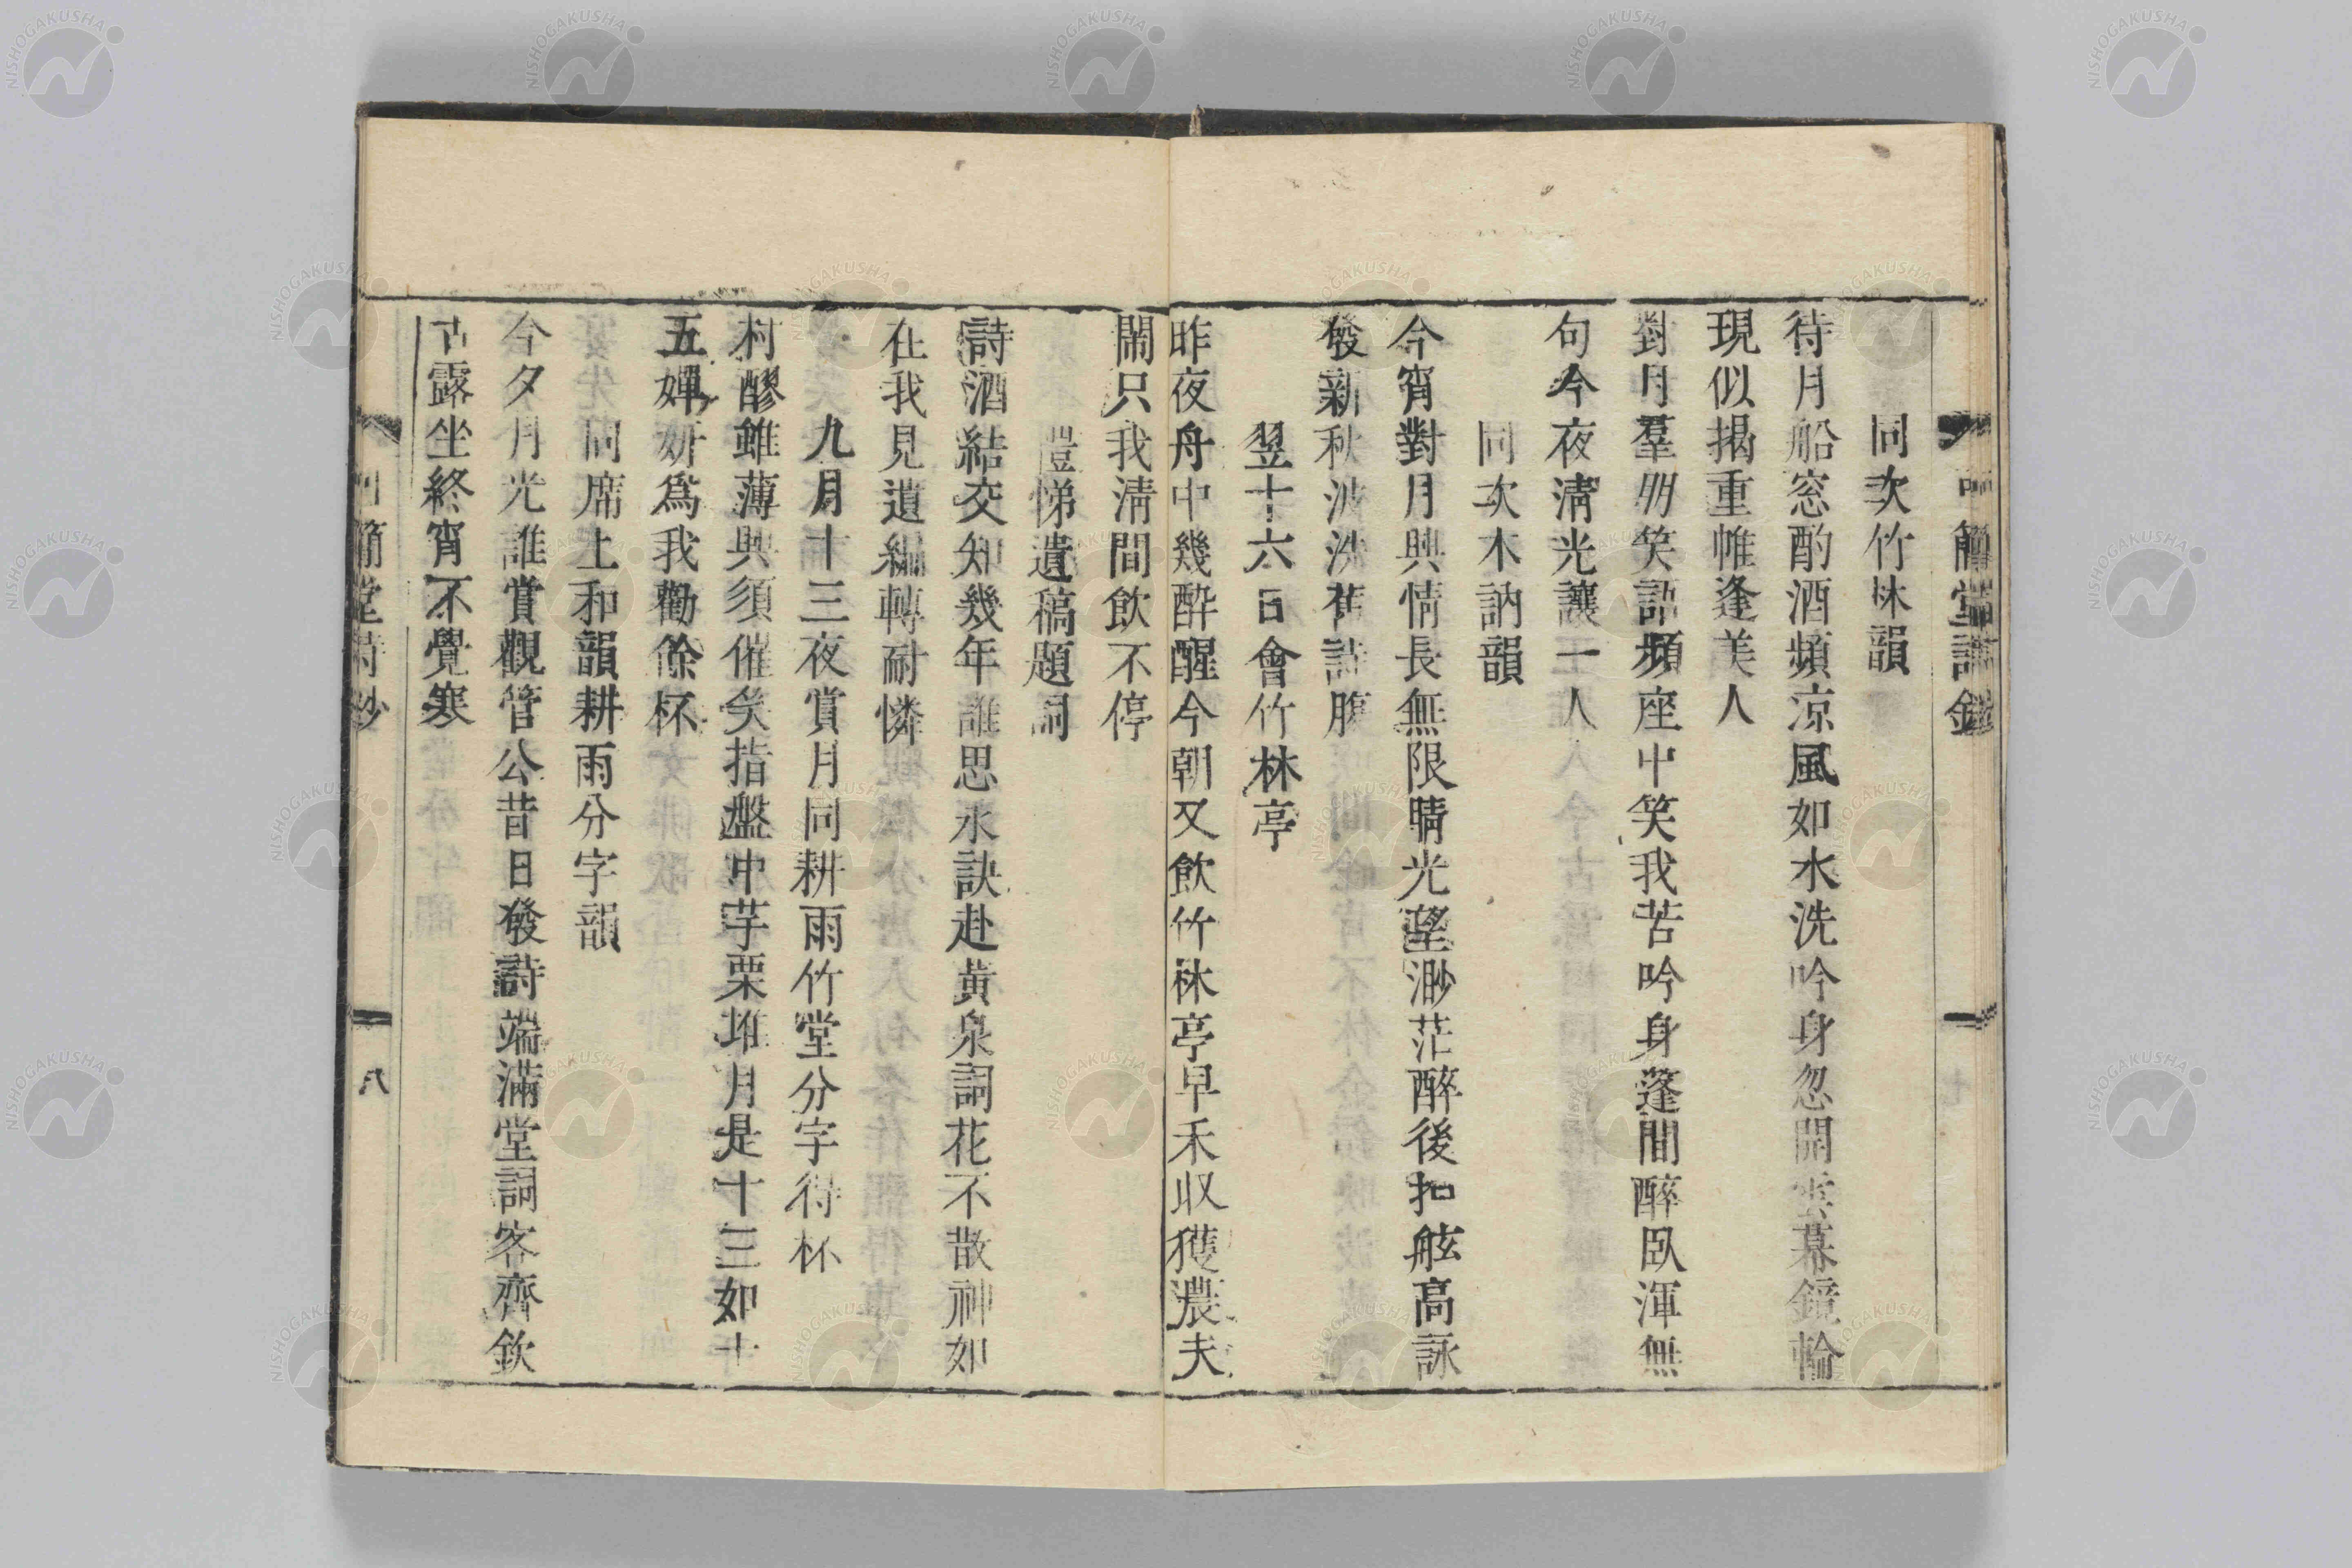 同次竹林韻
待月船窓酌酒頻凉風如水洗吟身忽開雲幕鏡輪
現似揭重帷逢美人
對月羣朋笑語頻座中笑我苦吟身蓬間醉臥渾無
句今夜淸光讓一人
同次木訥韻
今宵對月興情長無限晴光望渺茫醉後扣舷高詠
發新秋波洗舊詩腹
翌十六日會竹林亭
昨夜舟中幾醉醒今朝又飮竹林亭早禾収獲濃夫
閙只我淸間飮不停
愷悌遺稿題詞
詩酒結交知幾年誰思永訣赴黃泉詞花不散神如
在我見遺編轉耐憐
九月十三夜賞月同耕雨竹堂分字得杯
村醪雖薄興須催矣指盤中芋栗堆月是十三如十
五嬋妍爲我勸餘杯
同席上和韻耕雨分字韻
今夕月光誰賞觀管公昔日發詩端滿堂詞客齊欽
古露坐終宵不覺寒
簡堂詩鈔
八
NISHOGAKUSHA